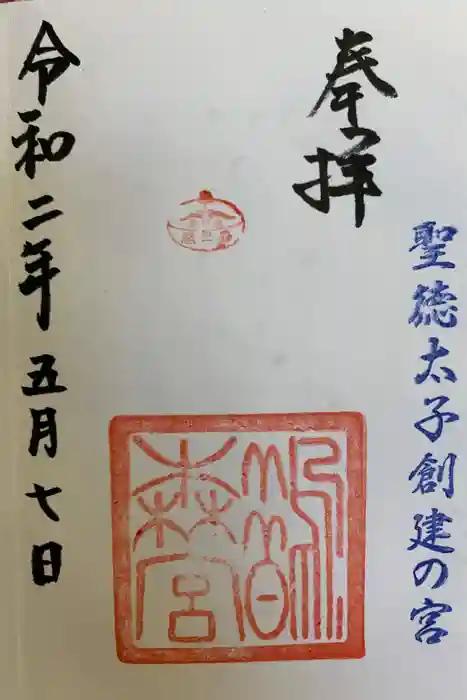 奉拝
聖徳太子創建の宮
鵲森宮
令和二年五月七日